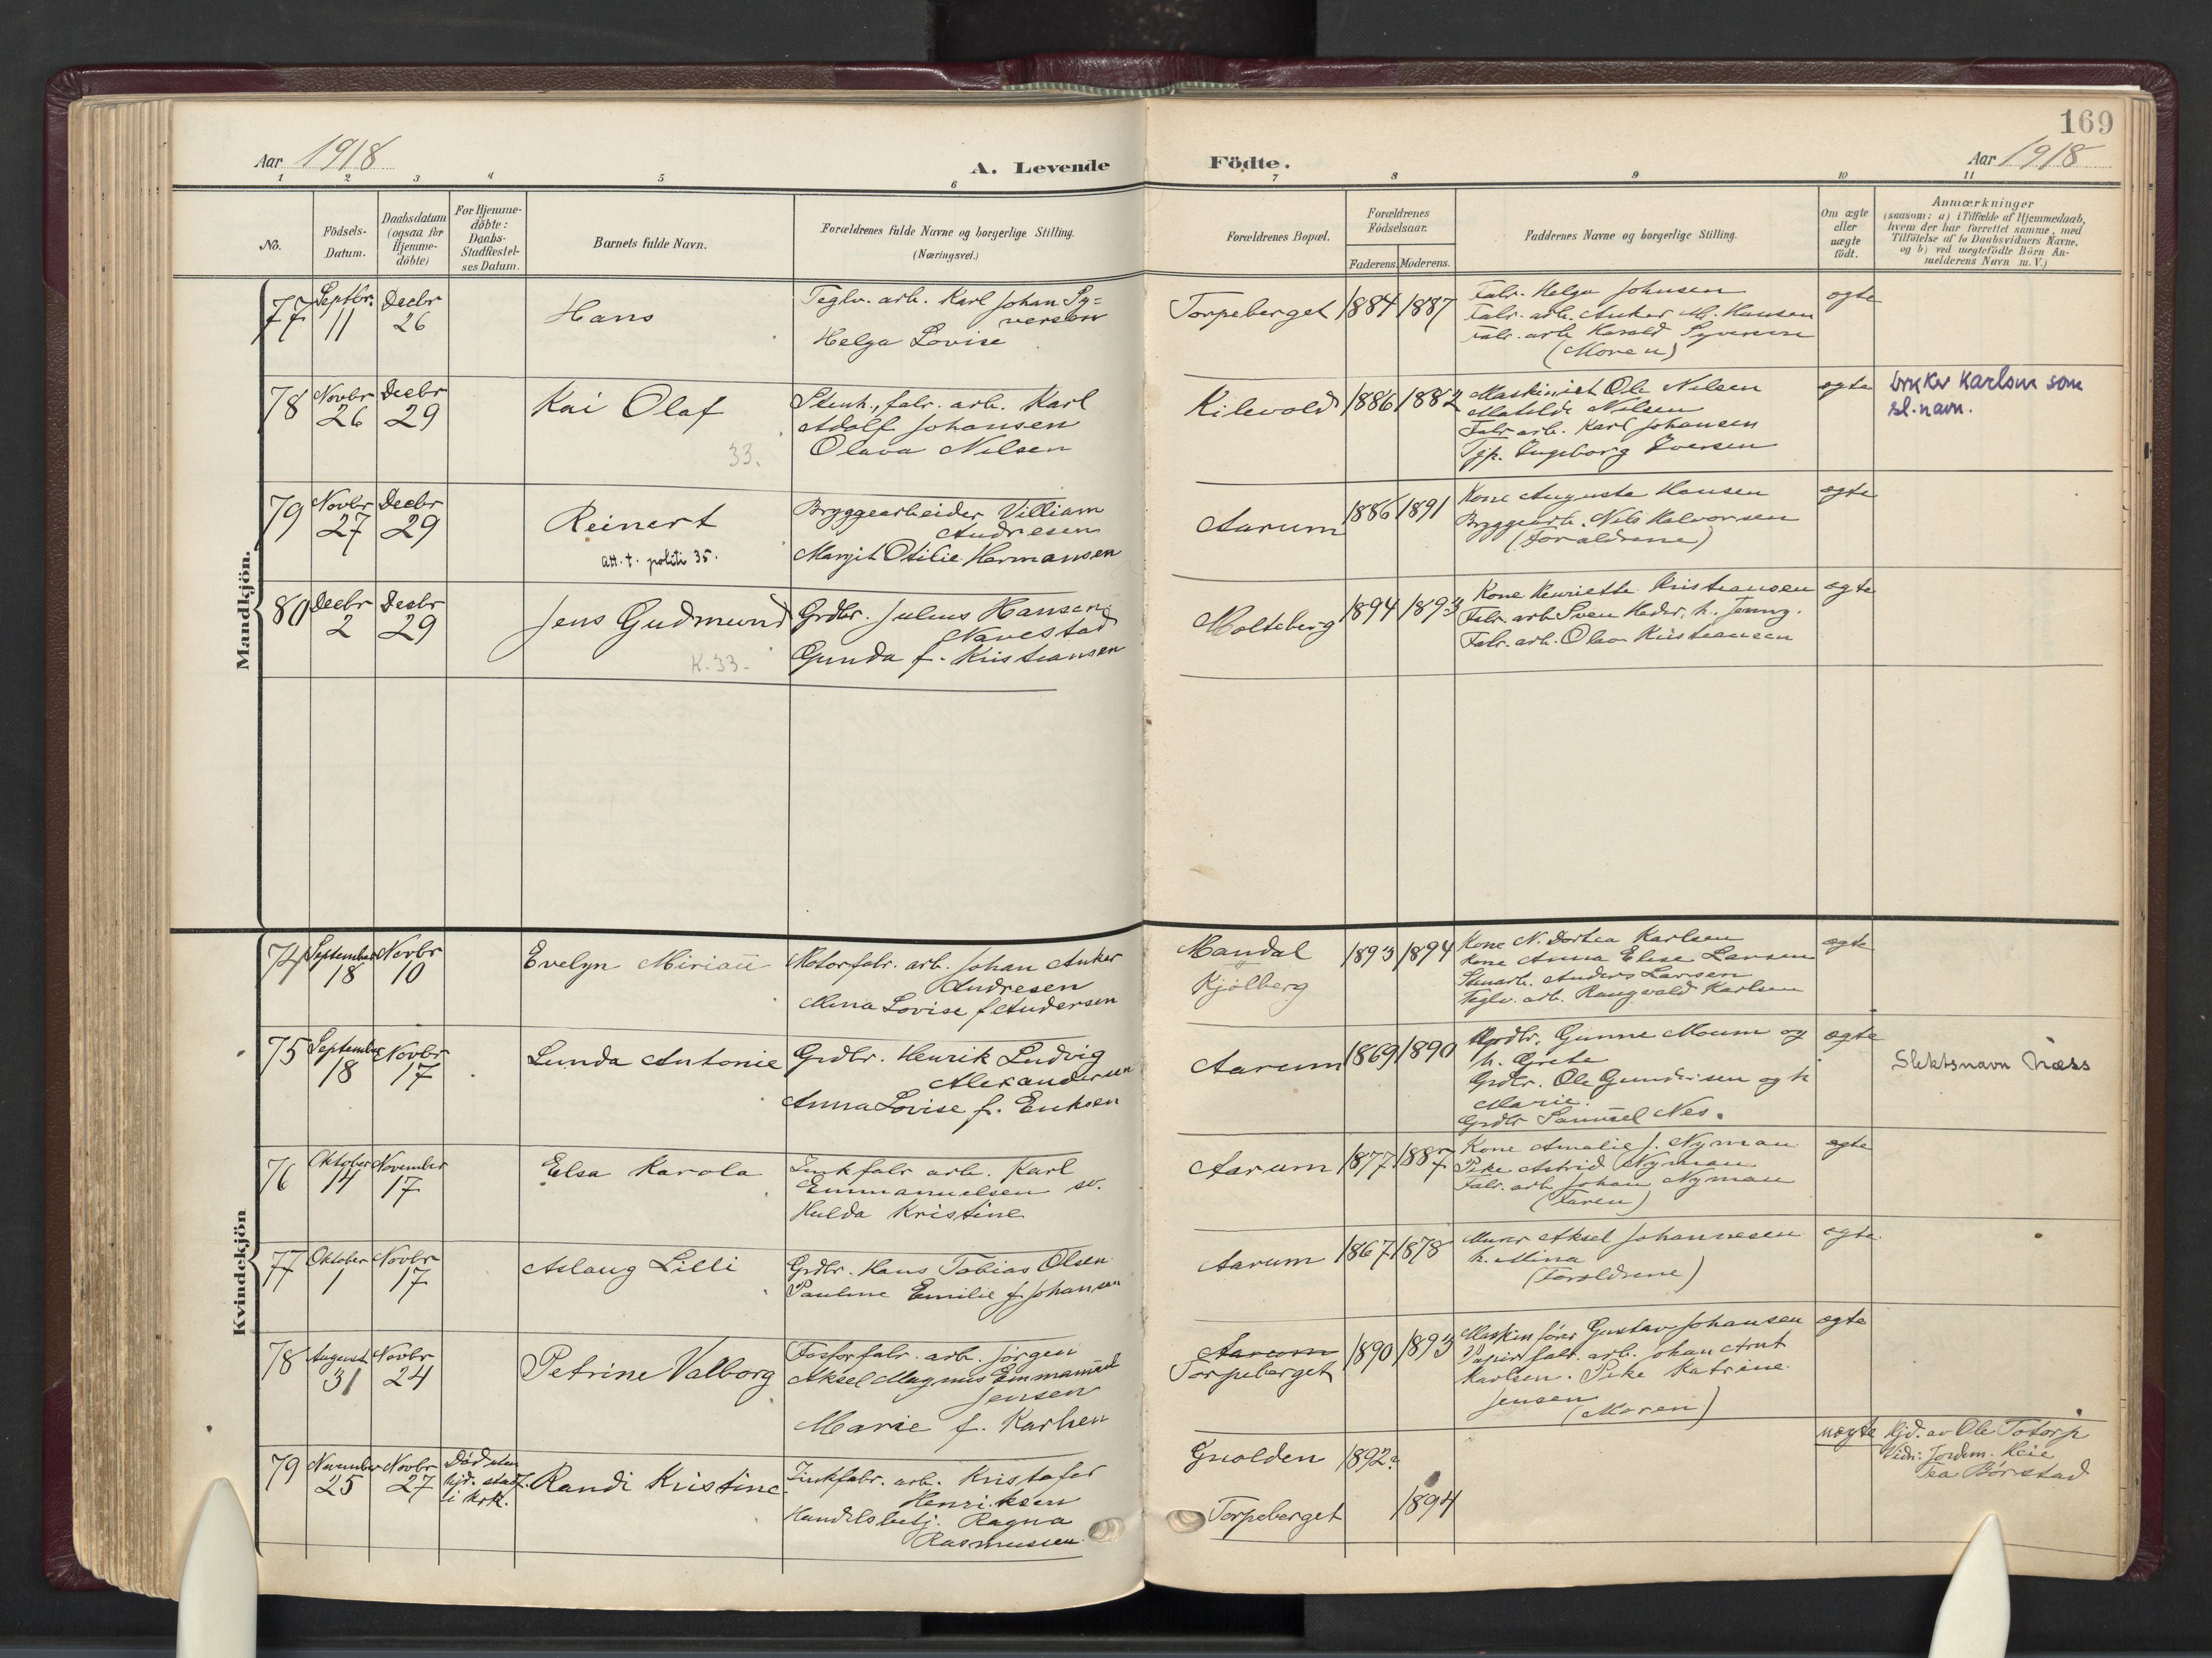 169
Aar 1918
A. Levende Födte.
Aar 1918
1 2 3 4 5 6 7 8 9 10 11
No.
Födsels-Datum.
Daabsdatum (ogsaa for Hjemme-döbte)
For Hjemme-döbte: Daabs-Stadfæstel-ses Datum.
Barnets fulde Navn.
Forældrenes fulde Navne og borgerlige Stilling.
(Næringsvei.)
Forældrenes Bopæl.
Forældrenes Födselsaar.
Faderens. Moderens.
Faddernes Navne og borgerlige Stilling.
Om ægte eller uægte födt.
Anmærkninger
(saasom: a) i Tilfælde af Hjemmedaab,
hvem der har forrettet samme, med
Tilföielse af to Daabsvidners Navne,
og b) ved uægtefödte Börn An-
melderens Navn m. V.)
Mandkjön.
77 Septbr. 11 Decbr 26
Hans
Teglv. arb. Karl Johan Sy=
versen
Helga Lovise
Torpeberget 1884 1887
Fabr. Helga Johnsen
Fabr. arb. Anker M. Hansen
Fabr. arb Harald Syversen
(Moren)
ægte
78 Novbr 26 Decbr 29
Kai Olaf
33.
Stenh., fabr. arb. Karl
Adolf Johansen
Olava Nilsen
Kilevold 1886 1882
Maskinist Ole Nilsen
Matilde Nilsen
Fabr arb. Karl Johansen
Tjp. Ingeborg Iversen
ægte
bruker Karlsen som
sl.navn.
79 Novbr 27 Decbr 29
Reinert
att. t. politi 35.
Bryggearbeider Villiam
Andresen
Margit Otilie Hermansen
Aarum 1886 1891
Kone Augusta Hansen
Bryggearb. Nils Halvorsen
(Forældrene)
ægte
80 Decbr 2 Decbr 29
Jens Gudmund
K. 33-
Grdbr. Julius Hansen
Navestad
Gunda f. Kristiansen
Molteberg 1894 1893
Kone Henriette Kristiansen
Fabr. arb Sven Heder, h. Jenny.
Fabr. arb. Olav Kristiansen
ægte
Kvindekjön
74 September 18 Novbr 10
Evelyn Miriam
Motorfabr. arb. Johan Anker
Andresen
Mina Lovise f Andersen
Mandal
Kjölberg
1893 1894
Kone N. Dortea Karlsen
Kone Anna Elise Larsen
Stenarb. Anders Larsen
Teglv. arb. Raugvald Karlsen
ægte
75 September 18 Novbr 17
Lunda Antonie
Grdbr. Henrik Ludvig
Alexandersen
Anna Lovise f. Eriksen
Aarum 1869 1890
Grdbr. Gunne Moum og
h. Grete
Grdbr. Ole Gundersen og h
Marie.
Grdbr Samuel Nes.
ægte
Slektsnavn Næss
76 Oktober 14 November 17
Elsa Karola
Zinkfabr arb. Karl
Emmanuelsen sv.
Hulda Kristine
Aarum 1877 1887
Kone Amalie J. Nyman
Pike Astrid Nyman
Fabr. arb Johan Nyman
(Faren)
ægte
77 Oktober 1 Novbr 17
Aslaug Lilli
Grdbr. Hans Tobias Olsen
Pauline Emilie f Johansen
Aarum 1867 1878
Murer Aksel Johannesen
h. Mina
(Forældrene)
ægte
78 August 31 Novbr 24
Petrine Valborg
Fosforfabr. arb. Jörgen
Aksel Magnus Emmanuel
Jensen
Marie f. Karlsen
Aarum
Torpeberget
1890 1893
Maskinförer Gustav Johansen
Papirfabr. arb. Johan Arnt
Karlsen. Pike Katrine
Jensen
(Moren)
ægte
79 November 25 Novbr 27
Död uten
hjd. stadf.
i Krk.
Randi Kristine
Zinkfabr. arb. Kristofer
Henriksen
Handelsbetj. Ragna
Rasmussen
Gnolden 1892
Torpeberget 1894
uægte
Hjd. av Ole Totorp
Vidn: Jordm. Heie
Tea Börstad